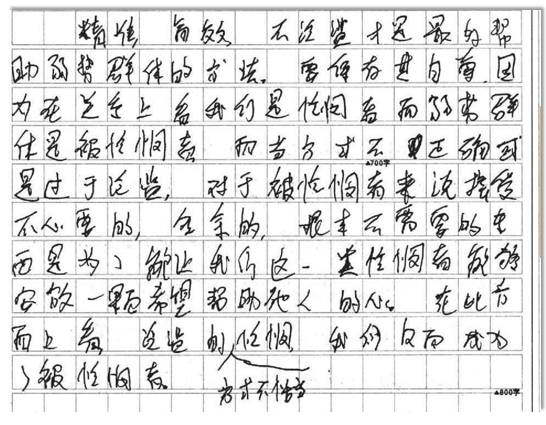 精准 高效 不泛滥 才是最好帮
助弱势群体的方法。要保存其自尊,因
为在泛泛上看我们是怜悯者而弱势群
体是被怜悯者 而当方式不正确或
▲700字
是过于泛滥,对于被怜悯者来说接受
不必要的,多余的,根本不需要的东
西是为了能让我们这一类怜悯者能够
安放一颗希望帮助他人的心。在此方
面上看,泛滥的怜悯 我们反而成为
了被怜悯者。
方式不恰当
▲800字